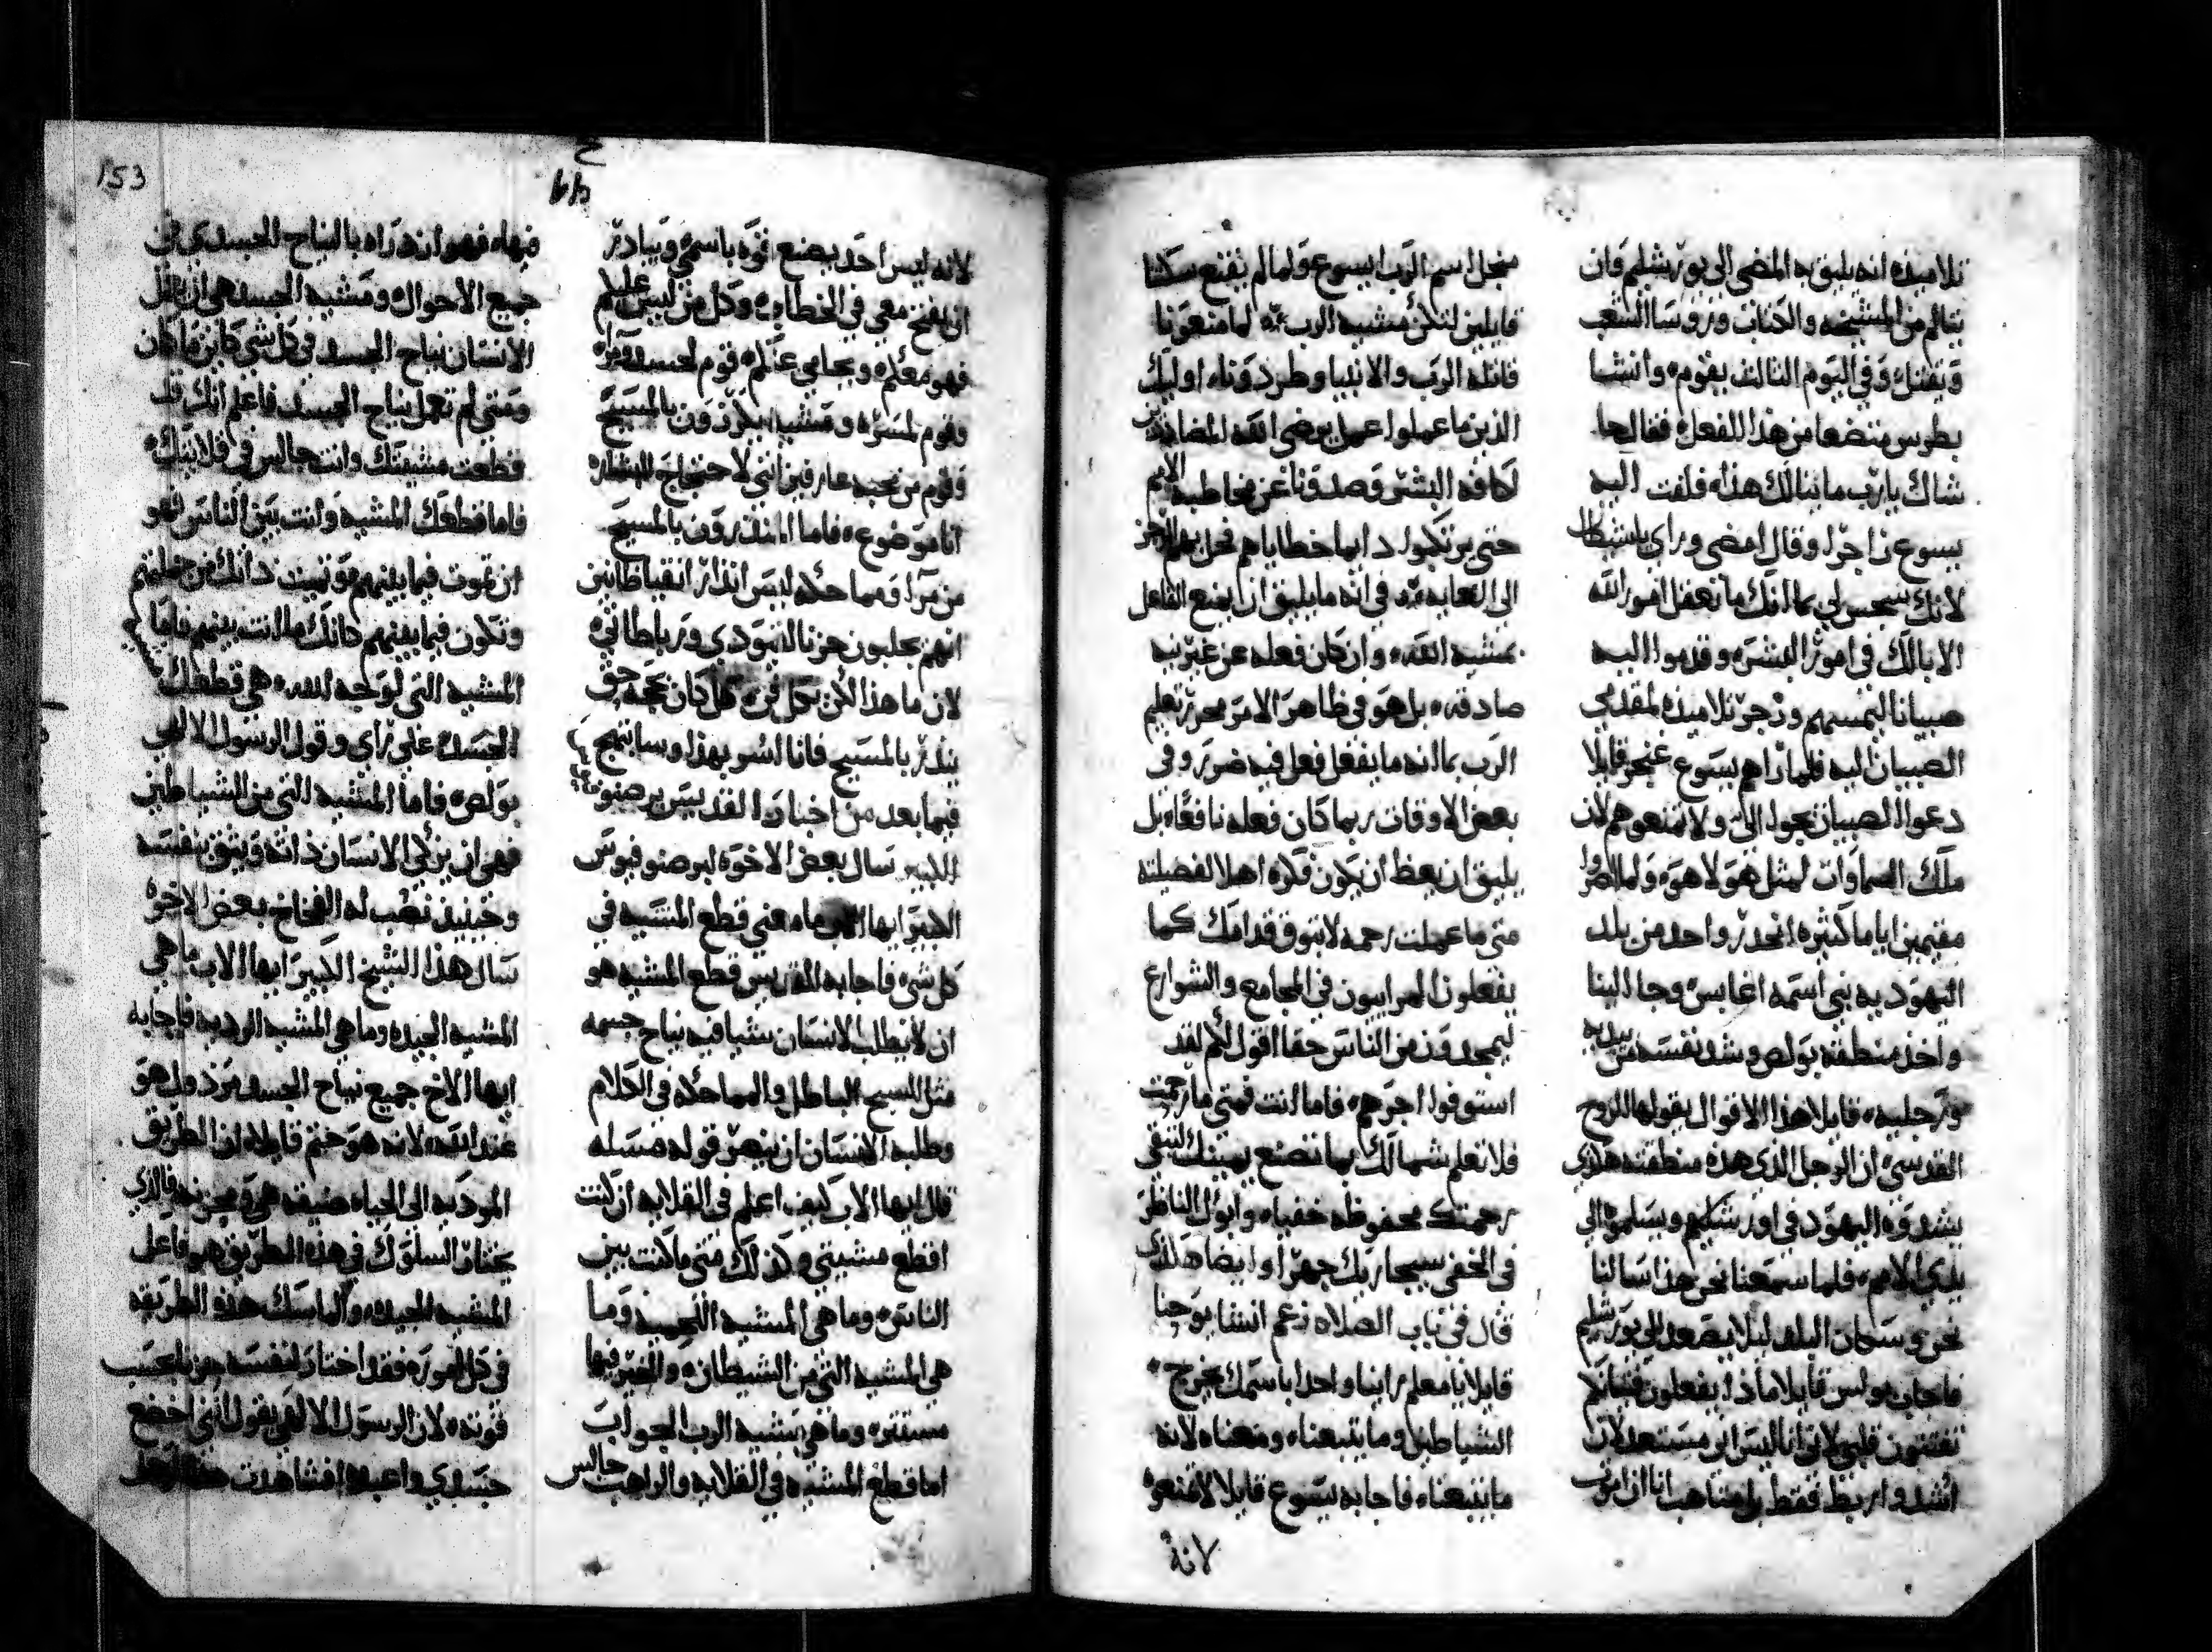 تلاميذه انه يليق به المضي الى يورشليم وان
يتالم من المشيخه والكتاب وروسا الشعب
ويقتل وفي اليوم الثالث يقوم وانشا
بطرس متضعا من هذا الفعل فقال حا
شاك يارب ما ينالك هذا فلفت اليه
يسوع زاجرا وقال امضي وراي ياشيطان
لانك سجس لي بما انك ما تعقل امور الله
الا بالك في امور البشر وقدموا اليه
صبيانا ليلمسهم وزجر تلاميذه لمقدمي
الصبيان اليه فلما راهم يسوع قايلا
دعوا الصبيان يجوا الي ولا تمنعوهم لان
ملك السماوات لمثل هولا هو ولما
مقيمين اياما كثيره انحدر واحد من بلد
اليهوديه نبي اسمه اغابس وجا الينا
واخذ منطقة بولص وشد نفسه من يديه
ورجليه قايلا هذا الاقوال يقولها الروح
القدس ان الرجل الذي هذه منطقته هكذي
يشدوه اليهود في اورشليم ويسلموه الى
يدي الامم فلما سمعنا نحن هذا سالنا
نحن وسكان البلد ليلا يصعد الى يورشليم
فاجاب بولس قايلا ماذا يفعلون
تفتتون قلبي لاني انا ليس اني مستعد لان
اشد واربط فقط بل متاهب انا ان اموت
منجل اسم الرب ايسوع ولما لم يقنع سكتنا
قايلين لتكن مشية الرب لما منعونا
قاتله الرب والانبيا وطردونا اوليك
الذين ما عملوا عمل يرضي الله المضاددين
لكافة البشر وصدونا عن مخاطبة الامم
حتى يرتكبوا دايما خطاياهم فحل بهم الرجز
الى الغايه في انه ما يليق ان يمنع الفاعل
بمشية الله وان كان فعله عن غير نيه
صادقه بل هو في ظاهر الامر محرر تعليم
الرب بما انه ما يفعل فعل فيه ضرر وفي
بعض الاوقات ربما كان فعله نافعا بل
يليق ان يعظ ان يكون فكره اهلا لفضيلته
متى ما عملت رحمه لا تبوق قدامك كما
يفعلون المراييون في المجامع والشوارع
ليمجدون من الناس حقا اقول لكم لقد
استوفوا اجرهم فاما انت فمتى ما رحمت
فلا تعلم شمالك بما تصنع يمينك لتبقى
رحمتك محفوظه خفيا وابوك الناظر
في الخفي سيجازيك جهرا وايضا هكذي
قال في باب الصلاه زعم انشا يوحنا
قايلا يا معلم راينا واحدا باسمك يخرج
الشياطين وما يتبعنا ومنعناه لانه
ما يتبعنا فاجابه يسوع قايلا لا تمنعوه
لانه
153
لانه ليس احد يصنع قوه باسمي ويبادر
ان يفتح معي في الخطا وكل من ليس عليكم
فهو معكم ويحامي عنكم قوم لحسد ومرا
وقوم لمسره ومشيه يكرزون بالمسيح
وقوم من محبه عارفين انني لاحتجاج البشاره
انا موضوع فاما المنذرون بالمسيح
من مرا ومماحكه ليس انذار انقيا ظانين
انهم يجلبون حزنا لتهودي ورباطاتي
لان ما هذا لكن بكل فن كل كان بحجه حق
ينذر بالمسيح فانا اسر بهذا وسابتهج
فيما بعد من اخبار القديس برصنوفيوس
الكبير سال بعض الاخوه لبرصنوفيوس
الكبير ايها الاب ما معني قطع المشيه في
كل شي فاجابه القديس قطع المشيه هو
ان لا يطلب الانسان شيا فيه نياح جسمه
مثل السبح الباطل والمماحكه في الكلام
وطلبه الانسان ان ينصر قوله مسله
قل ايها الاب كيف اعلم في القلايه ان كنت
اقطع مشيتي وكذلك متى ما كنت بين
الناس وما هي المشيه الجسد وما
هي المشيه التي من الشيطان والخير فيها
مستتره وما هي مشية الرب الجواب
اما قطع المشيه في القلايه والراهب جالس
فيها فهو ازدراه بالنياح الجسدي في
جميع الاحوال ومشية الجسد هي ان يعمل
الانسان نياح الجسد في كل شي كاين ما كان
ومتى لم تعمل نياح الجسد فاعلم انك قد
قطعت مشيتك وانت جالس في قلايتك
فاما قطعك المشيه وانت بين الناس فهو
ان تموت فيما بينهم موتيت ذاتك من جملتهم
وتكون فيما بينهم كانك ما انت بينهم فاما
المشيه التي لوجه الله هي قطعك
الجسد على راي وقول الرسول الالهي
بولص فاما المشيه التي من الشياطين
فهي ان يزكي الانسان ذاته ويثق بنفسه
وحينيذ تنصب له الفخاخ بعض الاخوه
سال هذا الشيخ الكبير ايها الاب ما هي
المشيه الجيده وما هي المشيه الرديه فاجابه
ايها الاخ جميع نياح الجسد مرذول هو
عند الله لانه هو حتم قايلا ان الطريق
الموديه الى الحياه ضيقه هي ومحزنه فالذي
يختار السلوك في هذه الطريق هو فاعل
المشيه الجيده والماسك هذه الطريقه
في كل اموره فقد اختار لنفسه حزنا بحسب
قوته لان الرسول الالهي يقول انني اخضع
جسدي واعبده افشاهدت